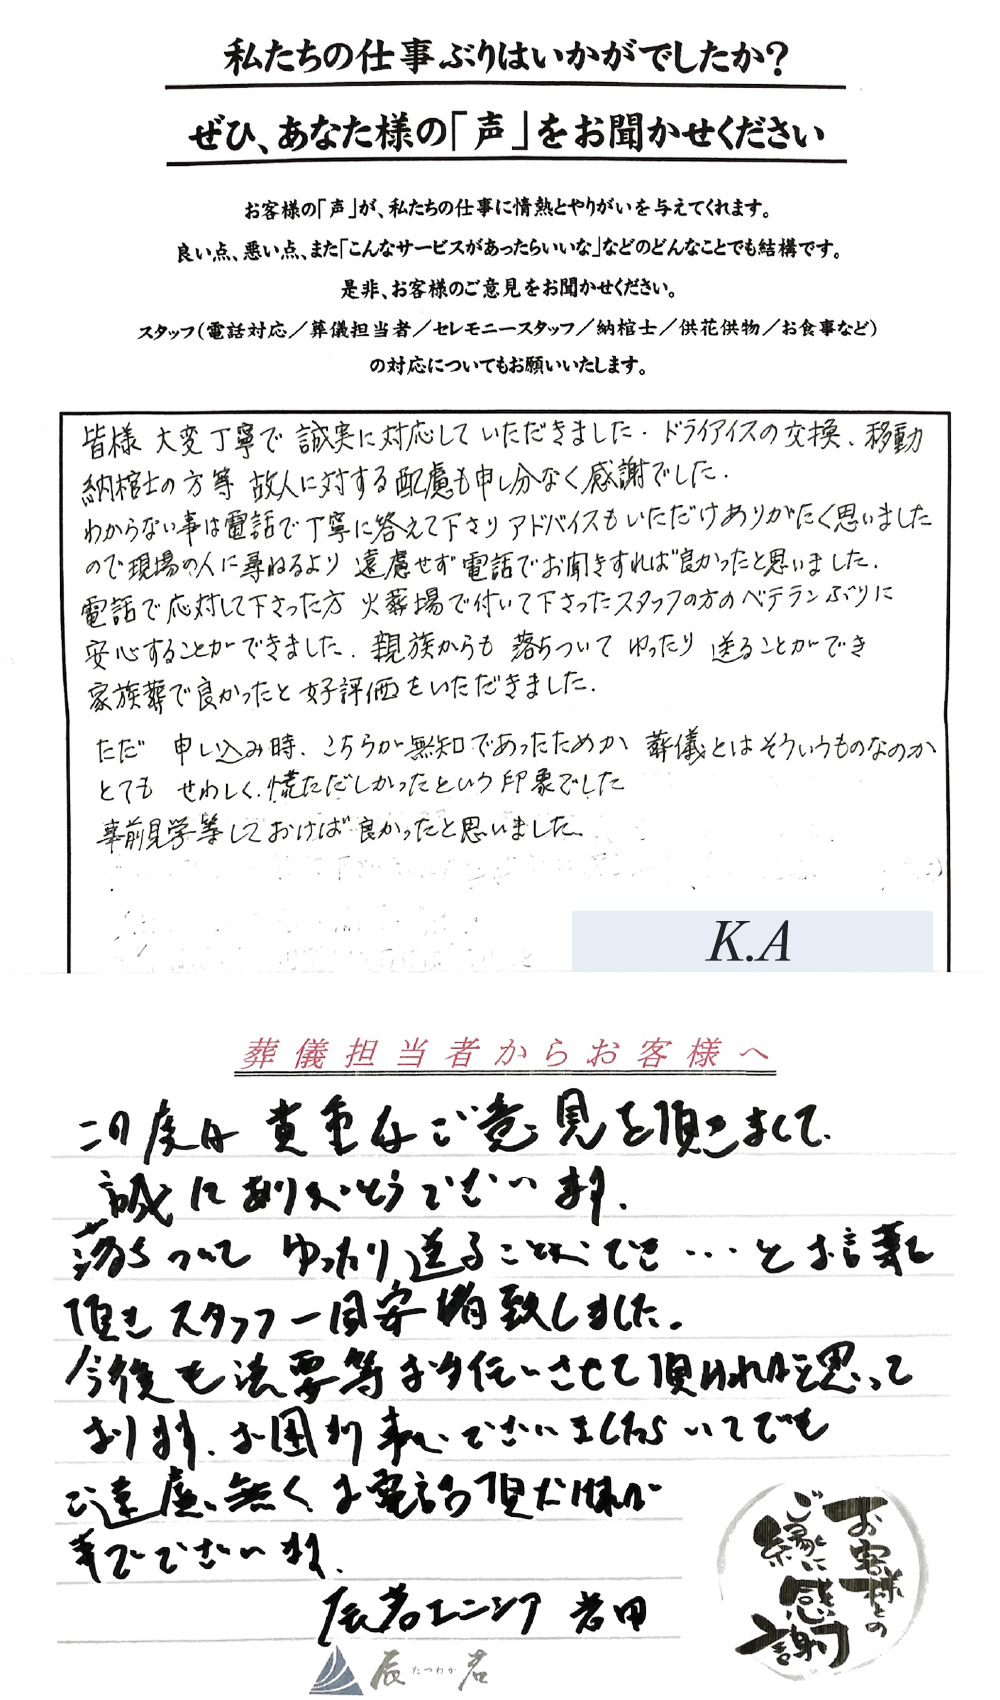 私たちの仕事ぶりはいかがでしたか？
ぜひ、あなた様の「声」をお聞かせください
お客様の「声」が、私たちの仕事に情熱とやりがいを与えてくれます。
良い点、悪い点、また「こんなサービスがあったらいいな」などのどんなことでも結構です。
是非、お客様のご意見をお聞かせください。
スタッフ（電話対応／葬儀担当者／セレモニースタッフ／納棺士／供花供物／お食事など）
の対応についてもお願いいたします。
皆様 大変丁寧で 誠実に対応して いただきました. ドライアイスの交換、移動
納棺士の方等 故人に対する配慮も申し分なく感謝でした.
わからない事は電話で丁寧に答えて下さり アドバイスもいただけありがたく思いました
ので現場の人に尋ねるより 遠慮せず電話でお聞きすれば良かったと思いました.
電話で応対して下さった方 火葬場で付いて下さったスタッフの方のベテランぶりに
安心することができました. 親族からも 落ちついて ゆったり 送ることができ
家族葬で良かったと 好評価をいただきました.
ただ 申し込み時、こちらが無知であったためか 葬儀とはそういうものなのか
とても せわしく、慌ただしかったという印象でした
事前見学等しておけば良かったと思いました.
K.A
葬儀担当者からお客様へ
この度は貴重なご意見を頂きまして、
誠にありがとうございます。
落ちついて ゆったり送ることができ…とお言葉を
頂き スタッフ一同安堵致しました。
今後も法要等お手伝いさせて頂ければと思って
おります。お困り事がございましたらいつでも
ご遠慮無くお電話頂だければ
幸でございます。
辰若エニシア 岩田
お客様との
ご縁に
感謝
辰 たつわか 若